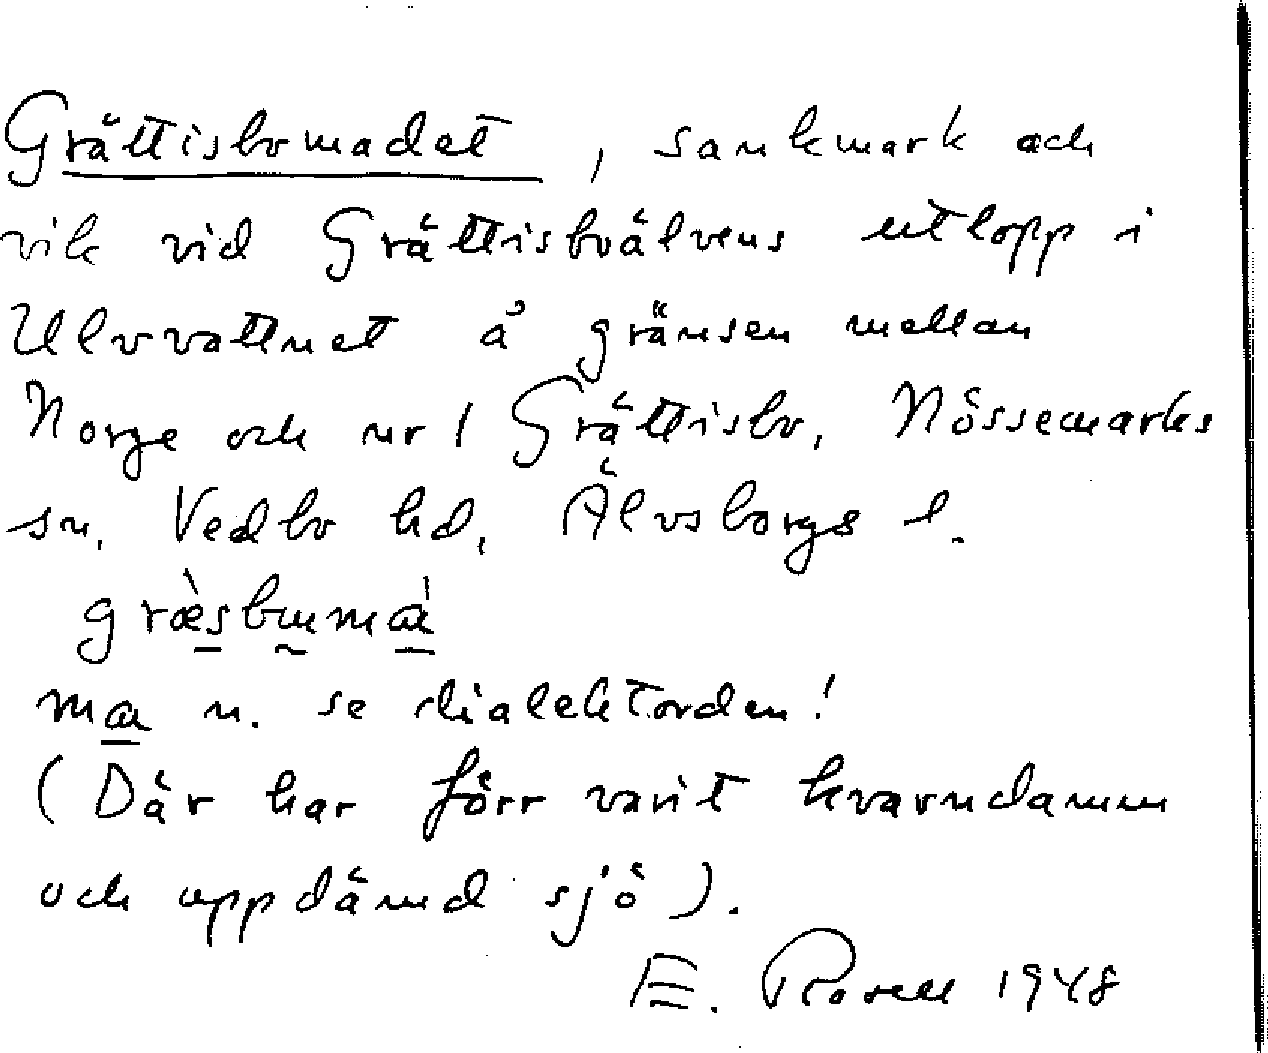 Grättisbomadet, sankmark och
vik vid Grättisboälvens utlopp i
Ulvvattnet å gränsen mellan
Norge och nr 1 Grättisbo, Nössemarks
sn, Vedbo hd, Älvsborgs l.
n. se dialektorden!
(Där har förr varit kvarndamm
och uppdämd sjö).
E. Rosell 1948